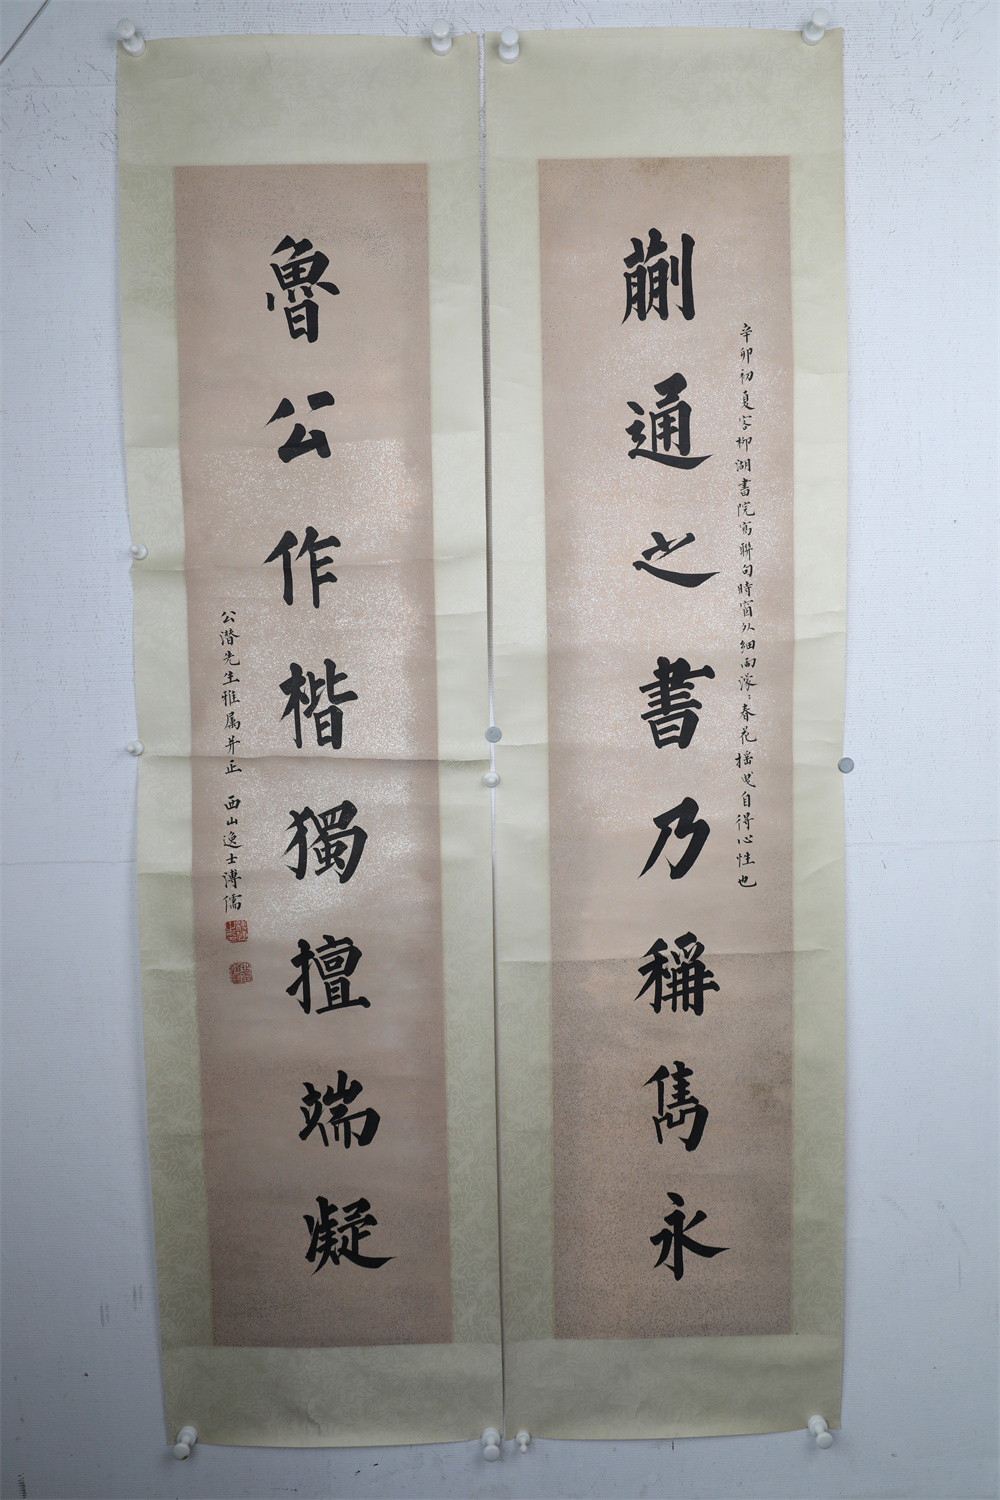 蒯通之書乃稱雋永
辛卯初夏客柳湖書院寫聯句時窗外細雨濛〻春花搖曳自得心性也
魯公作楷獨擅端凝
公潜先生雅属并正 西山逸士溥儒